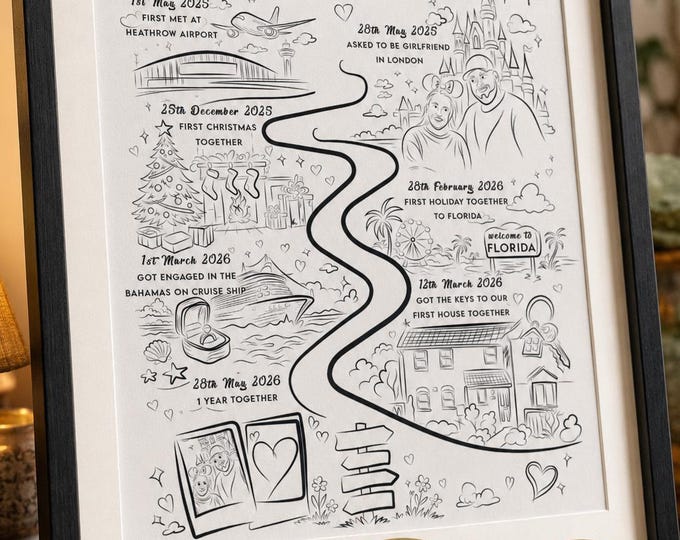 1st May 2025
FIRST MET AT
HEATHROW AIRPORT
28th May 2025
ASKED TO BE GIRLFRIEND
IN LONDON
25th December 2025
FIRST CHRISTMAS
TOGETHER
28th February 2026
FIRST HOLIDAY TOGETHER
TO FLORIDA
welcome to
FLORIDA
1st March 2026
GOT ENGAGED IN THE
BAHAMAS ON CRUISE SHIP
12th March 2026
GOT THE KEYS TO OUR
FIRST HOUSE TOGETHER
28th May 2026
1 YEAR TOGETHER